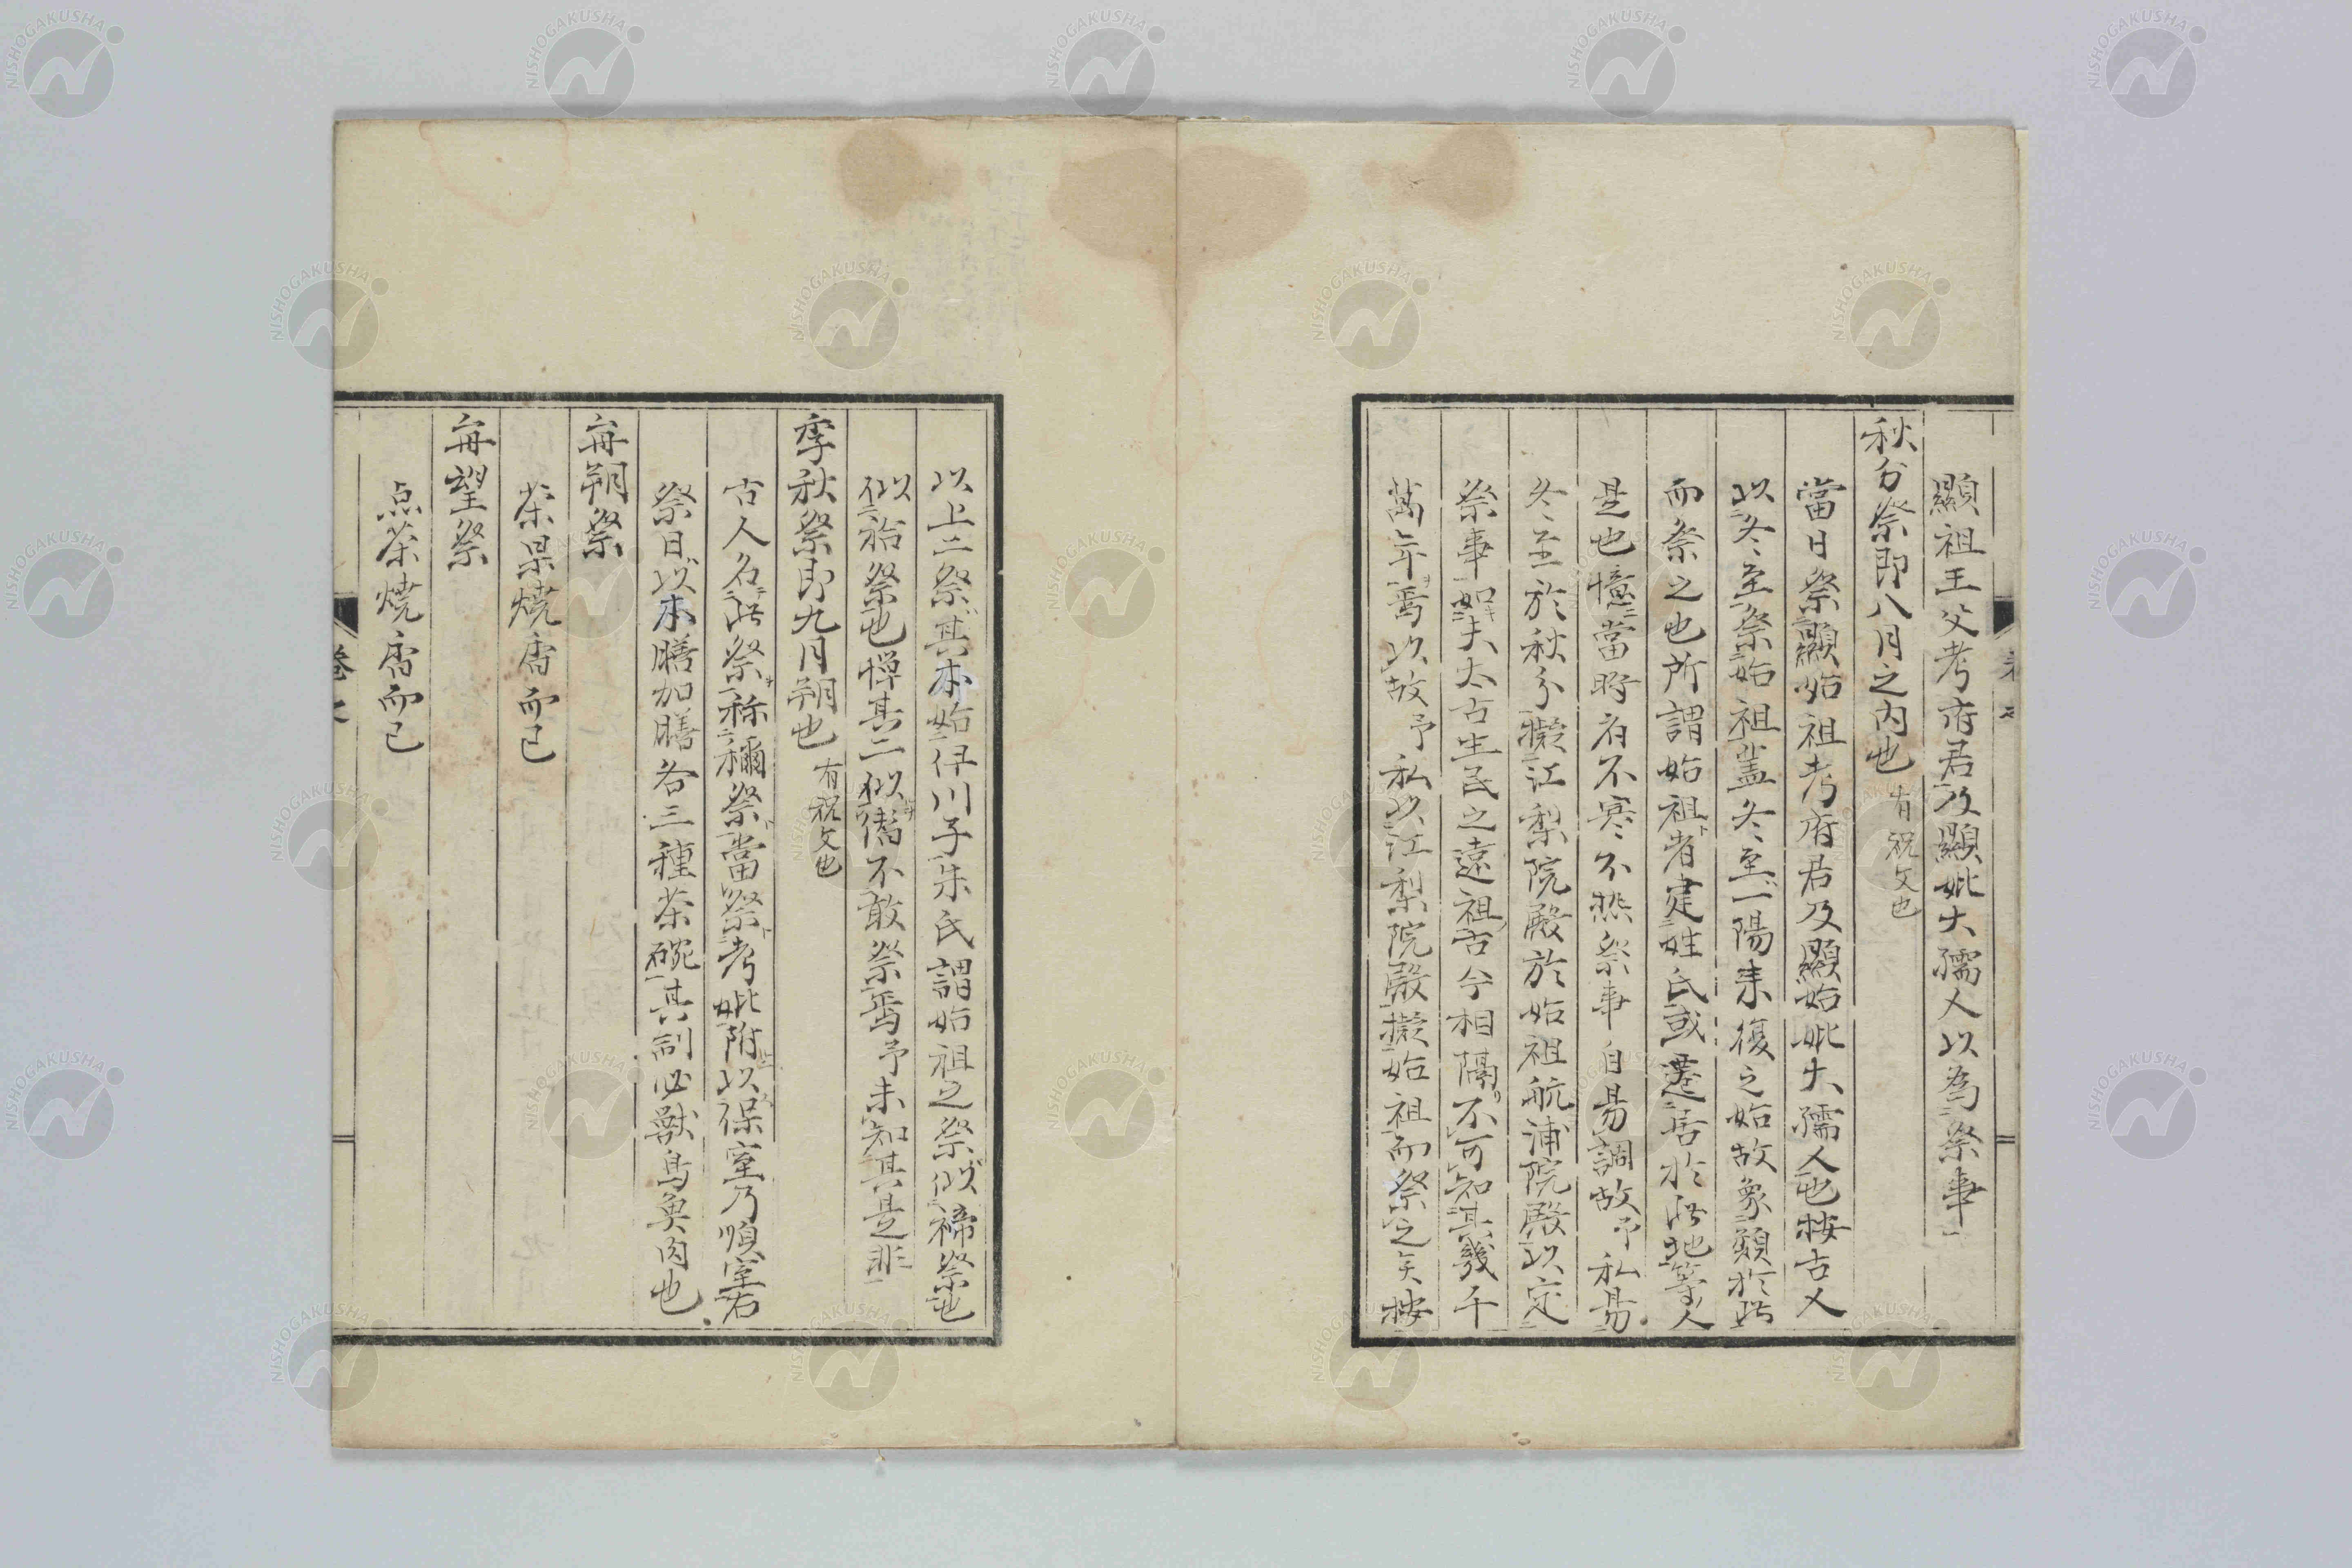 顯祖王父考府君及顯妣大孺人以為祭事
秋分祭即八月之内也 有祝文也
當日祭顯始祖考府君及顯始妣大孺人也按古人
以冬至祭始祖盖冬至一陽来復之始故象類於此
而祭之也所謂始祖者建姓氏或遷居於此地等人
是也憶當時有不寒不熱祭事自易調故予私易
冬至於秋分擬江梨院殿於始祖航浦院殿以定
祭事如夫太古生民之遠祖古今相隔不可知其幾千
萬年焉以故予私以江梨院殿擬始祖而祭之矣按
以上二祭其本始伊川子朱氏謂始祖之祭似禘祭也
似祫祭也憚其二似僭不敢祭焉予未知其是非
季秋祭即九月朔也 有祝文也
古人名此祭称禰祭當祭考妣附以保室乃順室右
祭日以本膳加膳各三種茶碗其制必獣鳥魚肉也
毎朔祭
茶果燒香而已
毎望祭
点茶燒香而已
NISHOGAKUSHA